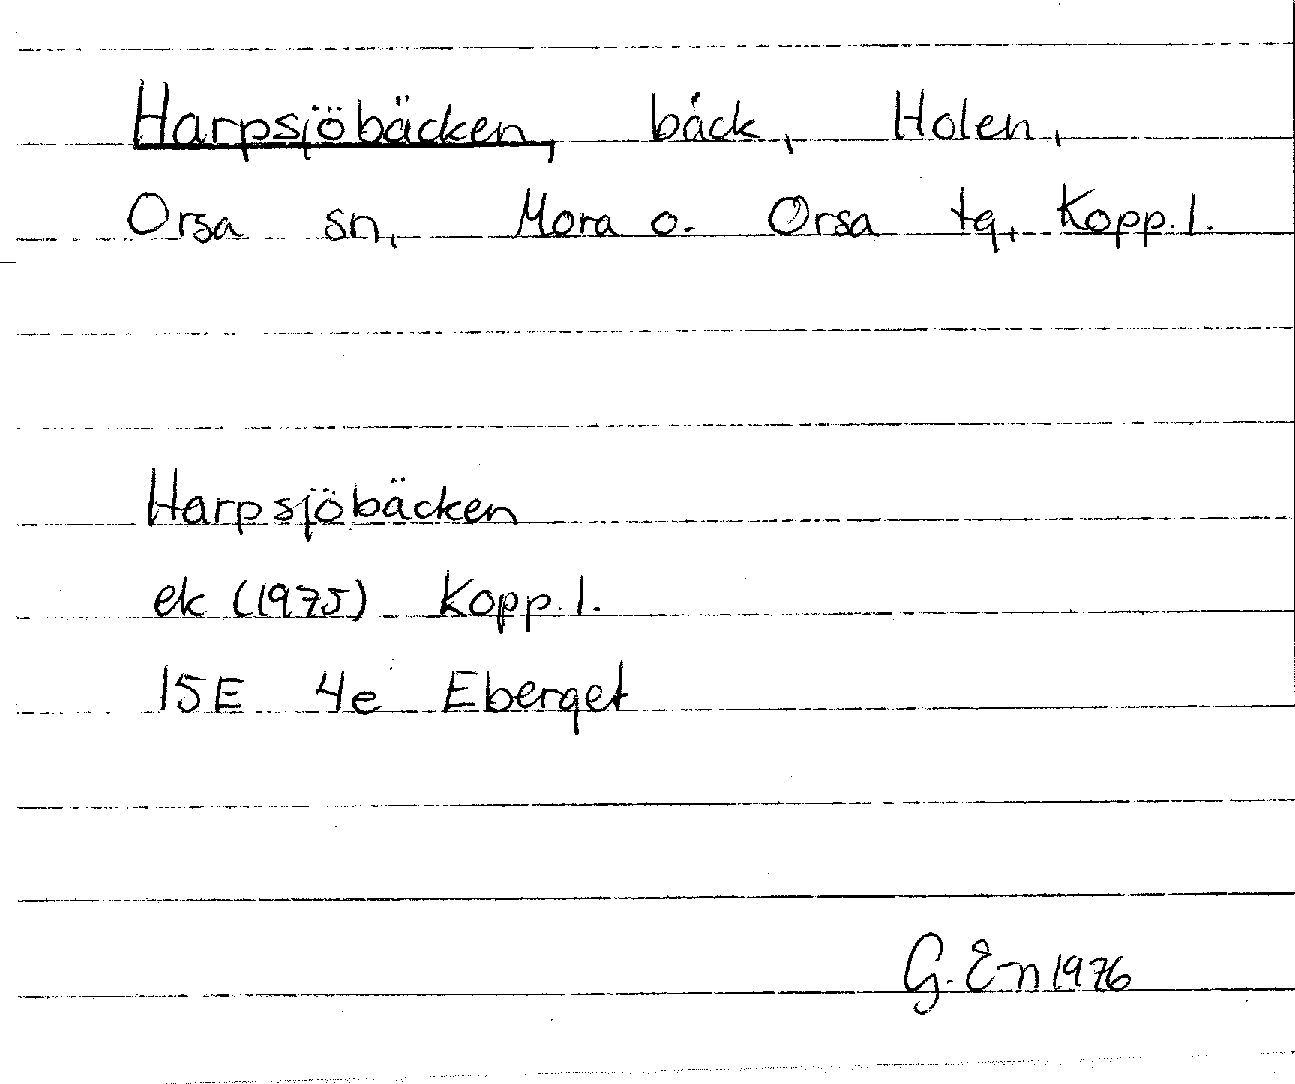 Harpsjöbäcken, bäck, Holen,
Orsa sn, Mora o. Orsa tg, Kopp. l.
Harpsjöbäcken
ek (1975) Kopp. l.
15E 4e Eberget
G. E-n 1976